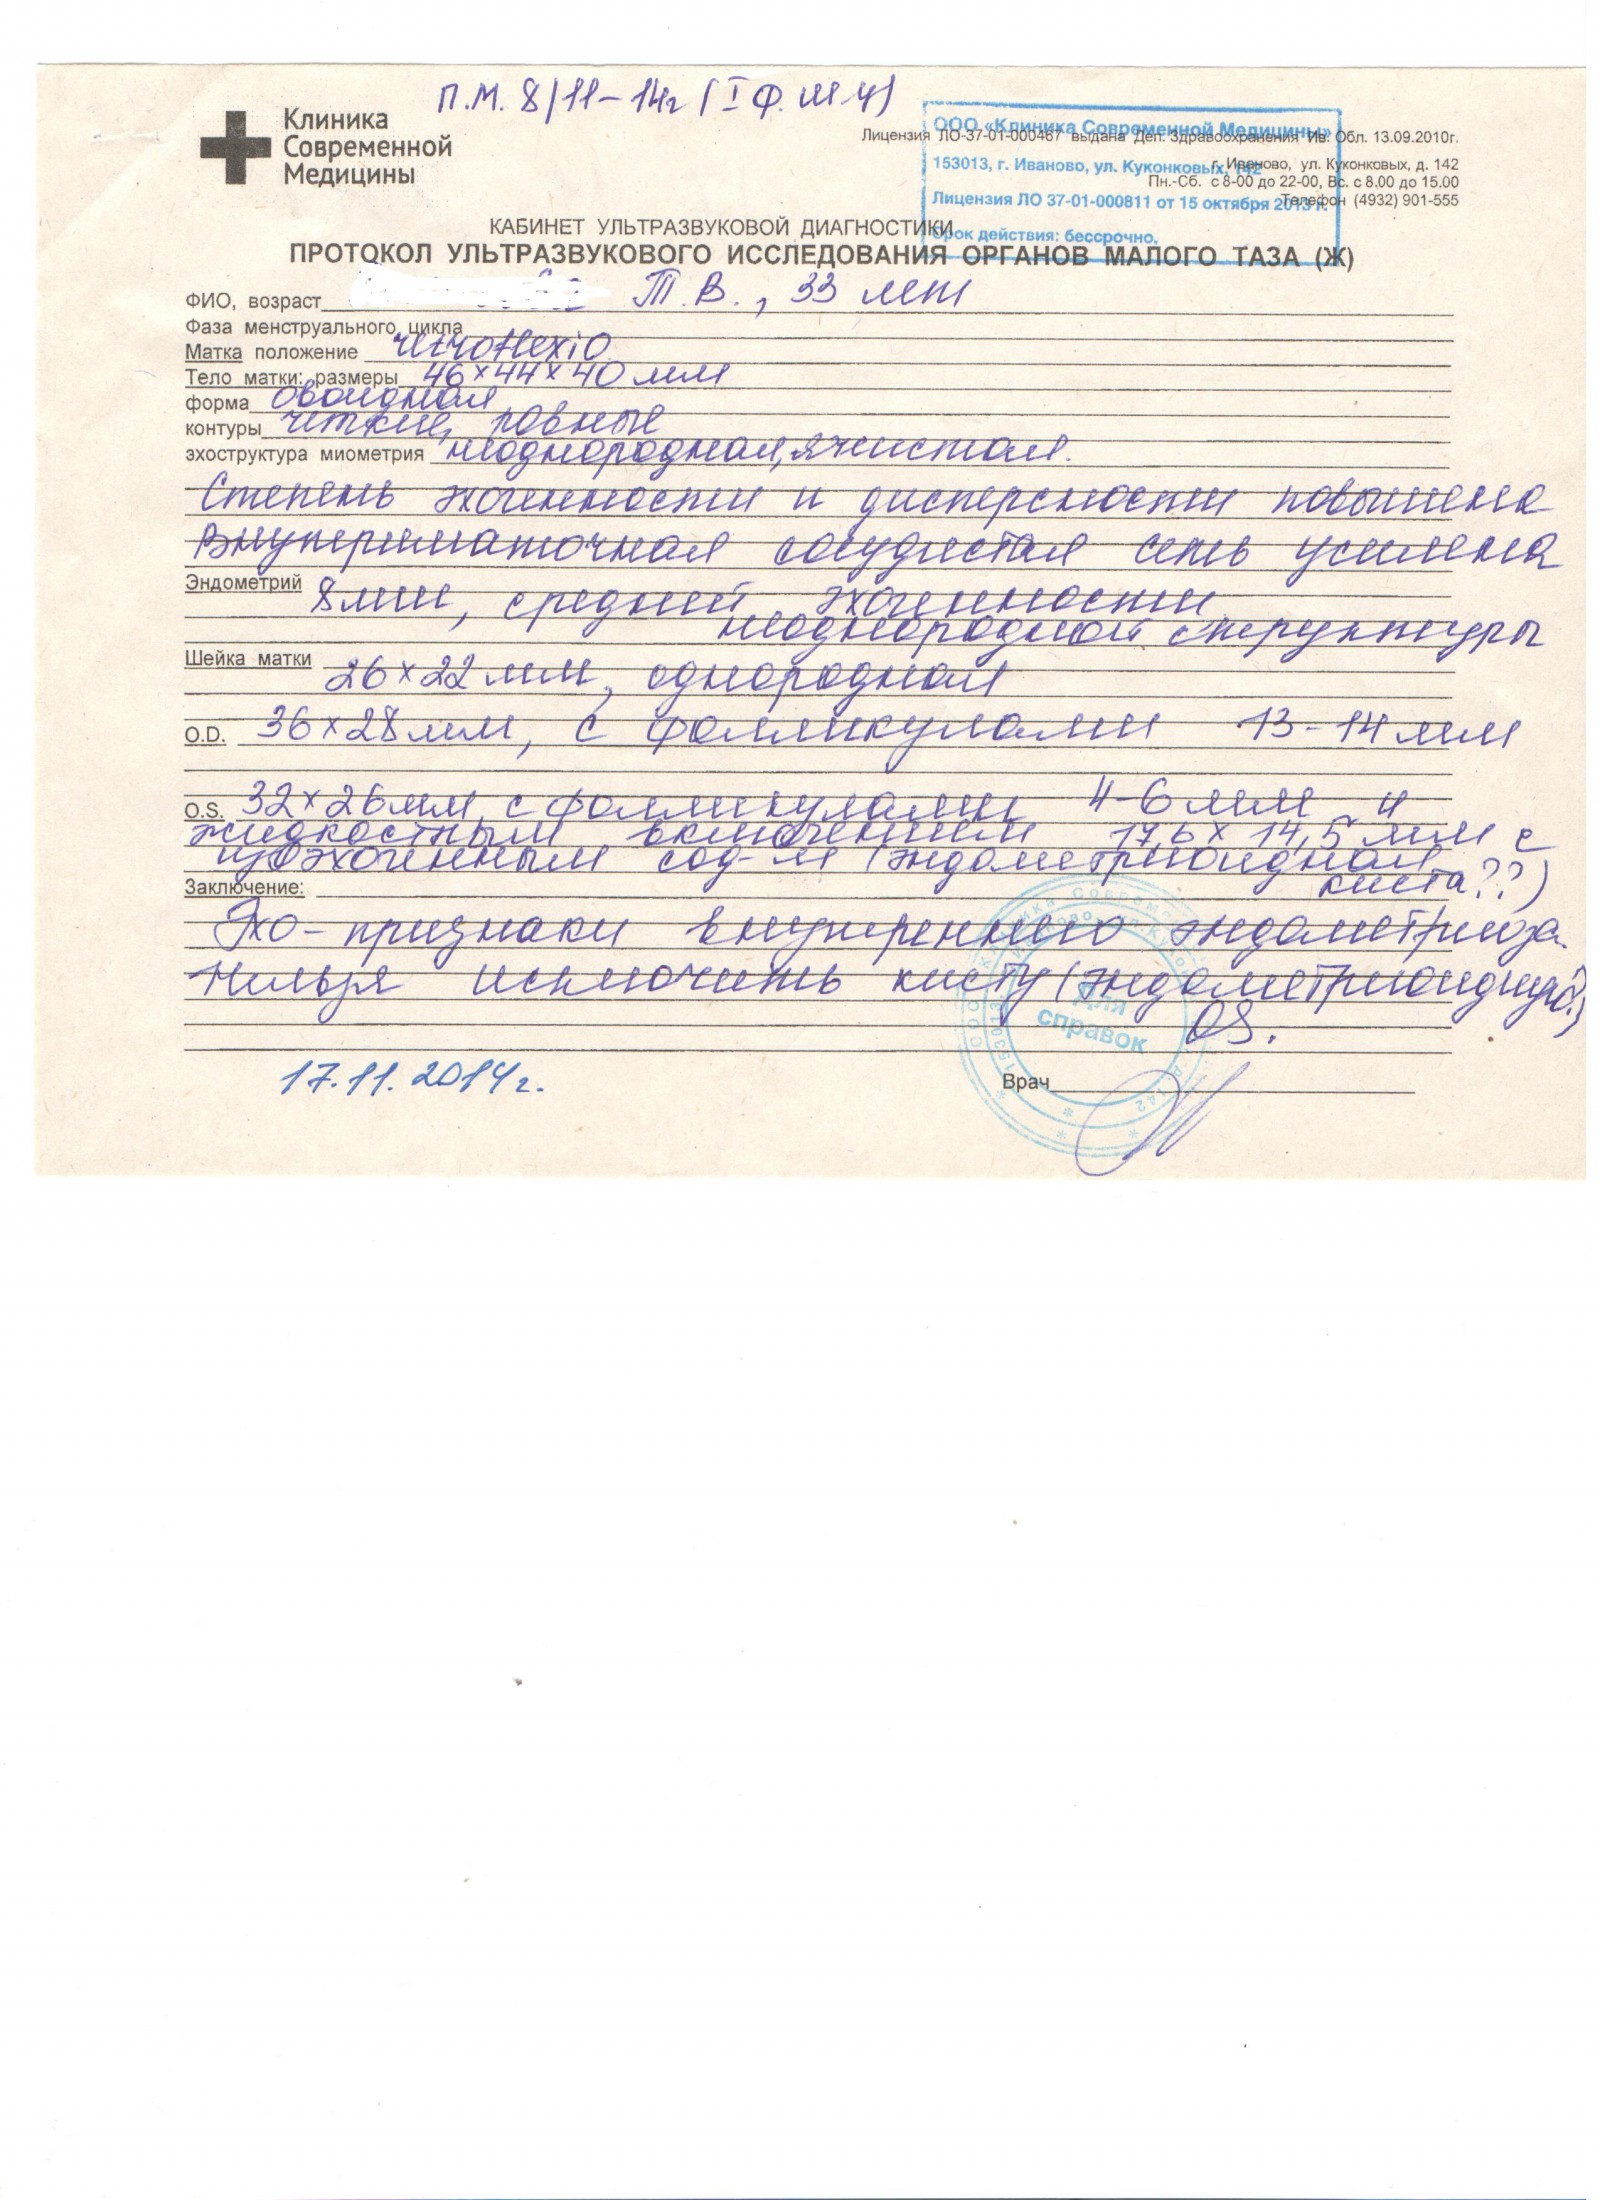 П.М. 8/11-14г (I ф. м.ц)
Клиника
Современной
Медицины
Лицензия ЛО-37-01-000467 выдана Деп. Здравоохранения Ив. Обл. 13.09.2010г.
г. Иваново, ул. Куконковых, д. 142
Пн.-Сб. с 8-00 до 22-00, Вс. с 8.00 до 15.00
Телефон (4932) 901-555
ООО «Клиника Современной Медицины»
153013, г. Иваново, ул. Куконковых, 142
Лицензия ЛО 37-01-000811 от 15 октября 2013 г.
Срок действия: бессрочно.
КАБИНЕТ УЛЬТРАЗВУКОВОЙ ДИАГНОСТИКИ
ПРОТОКОЛ УЛЬТРАЗВУКОВОГО ИССЛЕДОВАНИЯ ОРГАНОВ МАЛОГО ТАЗА (Ж)
ФИО, возраст Т.В., 33 лет
Фаза менструального цикла
Матка положение retroflexio
Тело матки: размеры 46×44×40 мм
форма овоидная
контуры четкие, ровные
эхоструктура миометрия неоднородная, ячеистая.
Степень эхогенности и дисперсности повышена
Внутриматочная сосудистая сеть усилена
Эндометрий 8мм, средней эхогенности
неоднородной структуры
Шейка матки 26×22 мм, однородная
O.D. 36×28 мм, с фолликулами 13-14 мм
O.S. 32×26мм, с фолликулами 4-6 мм и
жидкостным включением 17,6×14,5 мм с
изоэхогенным сод-м (эндометриоидная
киста??)
Заключение:
Эхо-признаки внутреннего эндометриоза.
Нельзя исключить кисту (эндометриоидную?)
OS.
Для
справок
17.11.2014г.
Врач